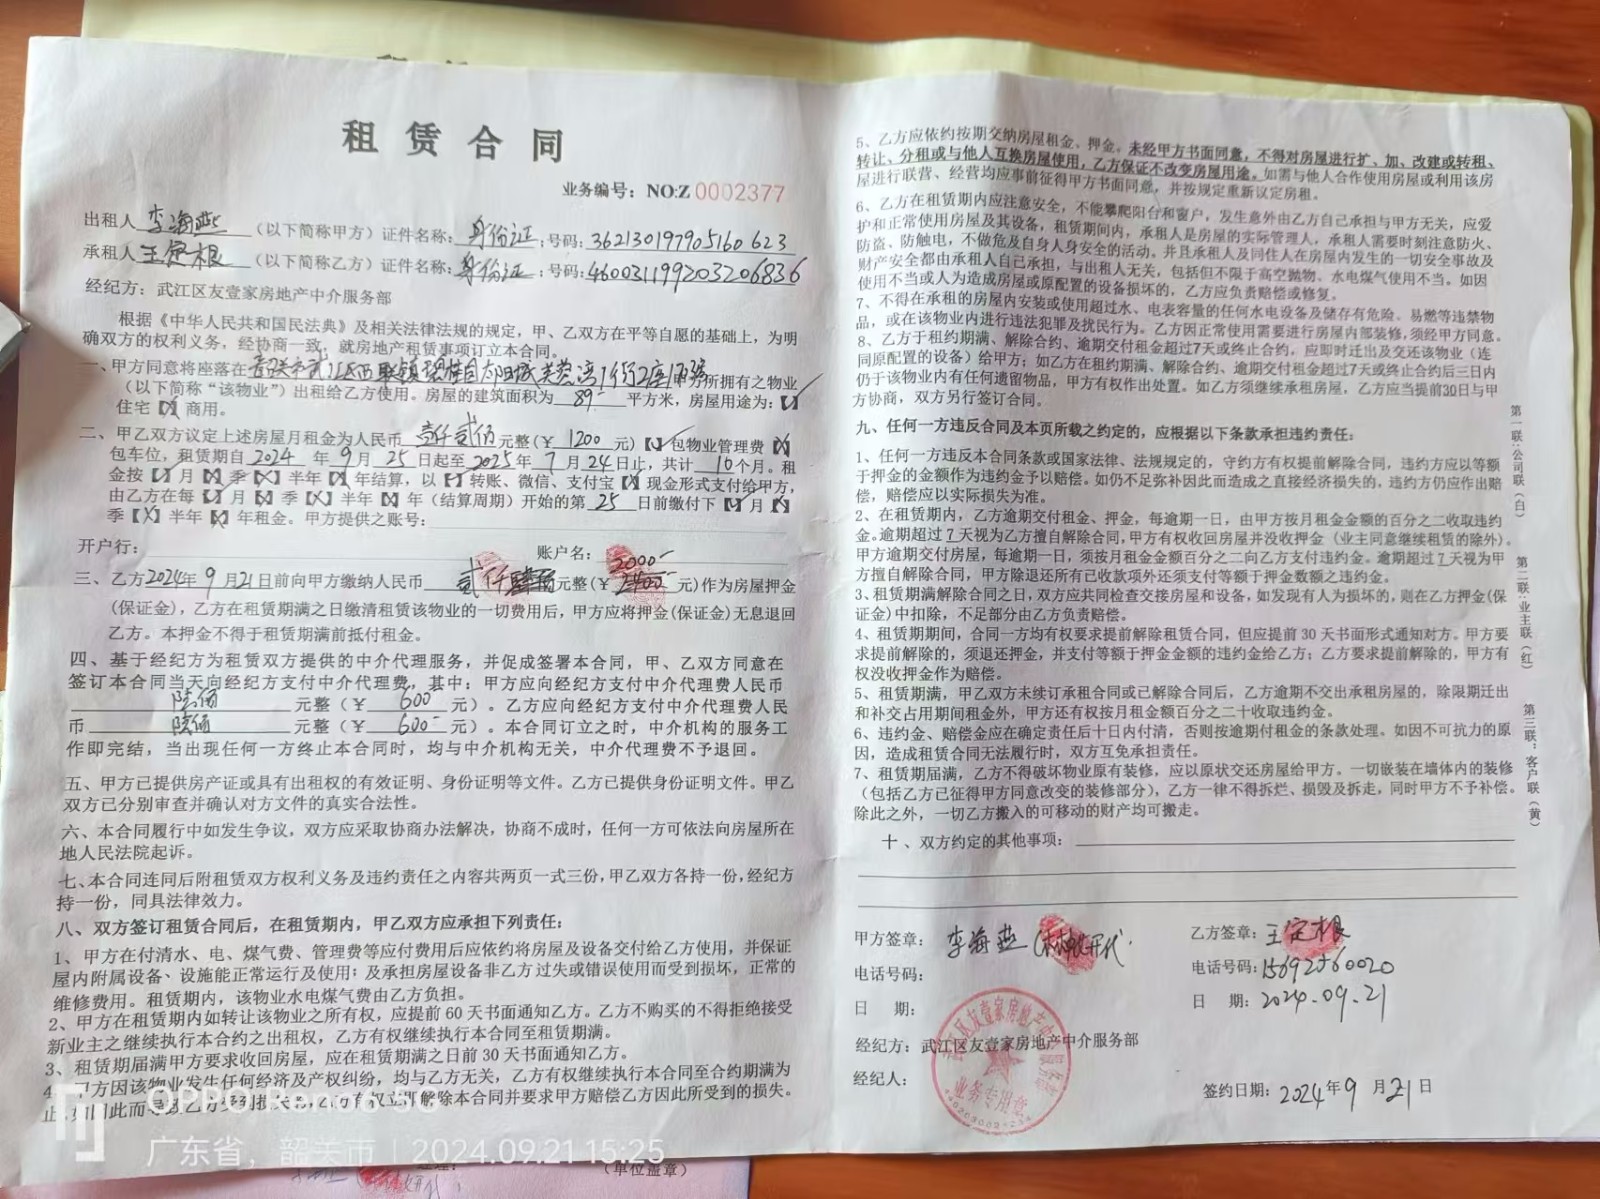 租赁合同
业务编号：NO:Z 0002377
出租人 李海燕 （以下简称甲方）证件名称：身份证；号码：362130197905160623
承租人 王定根 （以下简称乙方）证件名称：身份证；号码：460031199203206836
经纪方：武江区友壹家房地产中介服务部
根据《中华人民共和国民法典》及相关法律法规的规定，甲、乙双方在平等自愿的基础上，为明
确双方的权利义务，经协商一致，就房地产租赁事项订立本合同。
一、甲方同意将座落在韶关市武江区西联镇碧桂园太阳城芙蓉湾1街2座 所拥有之物业
（以下简称“该物业”）出租给乙方使用。房屋的建筑面积为 89 平方米，房屋用途为：【✓】
住宅【X】商用。
二、甲乙双方议定上述房屋月租金为人民币 壹仟贰佰 元整（￥ 1200 元）【✓】包物业管理费【X】
包车位，租赁期自 2024 年 9 月 25 日起至 2025 年 7 月 24 日止，共计 10 个月。租
金按【✓】月【X】季【X】半年【X】年结算，以【✓】转账、微信、支付宝【X】现金形式支付给甲方，
由乙方在每【✓】月【X】季【X】半年【X】年（结算周期）开始的第 25 日前缴付下【✓】月【X】
季【X】半年【X】年租金。甲方提供之账号：
开户行： 账户名：
2000-
三、乙方2024年9月21日前向甲方缴纳人民币 贰仟肆佰 元整（￥ 2400 元）作为房屋押金
（保证金），乙方在租赁期满之日缴清租赁该物业的一切费用后，甲方应将押金（保证金）无息退回
乙方。本押金不得于租赁期满前抵付租金。
四、基于经纪方为租赁双方提供的中介代理服务，并促成签署本合同，甲、乙双方同意在
签订本合同当天向经纪方支付中介代理费，其中：甲方应向经纪方支付中介代理费人民币
陆佰 元整（￥ 600 元）。乙方应向经纪方支付中介代理费人民
币 陆佰 元整（￥ 600- 元）。本合同订立之时，中介机构的服务工
作即完结，当出现任何一方终止本合同时，均与中介机构无关，中介代理费不予退回。
五、甲方已提供房产证或具有出租权的有效证明、身份证明等文件。乙方已提供身份证明文件。甲乙
双方已分别审查并确认对方文件的真实合法性。
六、本合同履行中如发生争议，双方应采取协商办法解决，协商不成时，任何一方可依法向房屋所在
地人民法院起诉。
七、本合同连同后附租赁双方权利义务及违约责任之内容共两页一式三份，甲乙双方各持一份，经纪方
持一份，同具法律效力。
八、双方签订租赁合同后，在租赁期内，甲乙双方应承担下列责任：
1、甲方在付清水、电、煤气费、管理费等应付费用后应依约将房屋及设备交付给乙方使用，并保证
屋内附属设备、设施能正常运行及使用；及承担房屋设备非乙方过失或错误使用而受到损坏，正常的
维修费用。租赁期内，该物业水电煤气费由乙方负担。
2、甲方在租赁期内如转让该物业之所有权，应提前60天书面通知乙方。乙方不购买的不得拒绝接受
新业主之继续执行本合约之出租权，乙方有权继续执行本合同至租赁期满。
3、租赁期届满甲方要求收回房屋，应在租赁期满之日前30天书面通知乙方。
4、甲方因该物业发生任何经济及产权纠纷，均与乙方无关，乙方有权继续执行本合同至合约期满为
止，如因此而导致乙方受到损失，乙方有权立即解除本合同并要求甲方赔偿乙方因此所受到的损失。
OPPO Reno6 5G
广东省，韶关市 | 2024.09.21 15:25
（单位盖章）
5、乙方应依约按期交纳房屋租金、押金。未经甲方书面同意，不得对房屋进行扩、加、改建或转租、
转让、分租或与他人互换房屋使用，乙方保证不改变房屋用途。如需与他人合作使用房屋或利用该房
屋进行联营、经营均应事前征得甲方书面同意，并按规定重新议定房租。
6、乙方在租赁期内应注意安全，不能攀爬阳台和窗户，发生意外由乙方自己承担与甲方无关，应爱
护和正常使用房屋及其设备，租赁期间内，承租人是房屋的实际管理人，承租人需要时刻注意防火、
防盗、防触电，不做危及自身人身安全的活动。并且承租人及同住人在房屋内发生的一切安全事故及
财产安全都由承租人自己承担，与出租人无关，包括但不限于高空抛物、水电煤气使用不当。如因
使用不当或人为造成房屋或原配置的设备损坏的，乙方应负责赔偿或修复。
7、不得在承租的房屋内安装或使用超过水、电表容量的任何水电设备及储存有危险、易燃等违禁物
品，或在该物业内进行违法犯罪及扰民行为。乙方因正常使用需要进行房屋内部装修，须经甲方同意。
8、乙方于租约期满、解除合约、逾期交付租金超过7天或终止合约，应即时迁出及交还该物业（连
同原配置的设备）给甲方；如乙方在租约期满、解除合约、逾期交付租金超过7天或终止合约后三日内
仍于该物业内有任何遗留物品，甲方有权作出处置。如乙方须继续承租房屋，乙方应当提前30日与甲
方协商，双方另行签订合同。
九、任何一方违反合同及本页所载之约定的，应根据以下条款承担违约责任：
1、任何一方违反本合同条款或国家法律、法规规定的，守约方有权提前解除合同，违约方应以等额
于押金的金额作为违约金予以赔偿。如仍不足弥补因此而造成之直接经济损失的，违约方仍应作出赔
偿，赔偿应以实际损失为准。
2、在租赁期内，乙方逾期交付租金、押金，每逾期一日，由甲方按月租金金额的百分之二收取违约
金。逾期超过7天视为乙方擅自解除合同，甲方有权收回房屋并没收押金（业主同意继续租赁的除外）。
甲方逾期交付房屋，每逾期一日，须按月租金金额百分之二向乙方支付违约金。逾期超过7天视为甲
方擅自解除合同，甲方除退还所有已收款项外还须支付等额于押金数额之违约金。
3、租赁期满解除合同之日，双方应共同检查交接房屋和设备，如发现有人为损坏的，则在乙方押金（保
证金）中扣除，不足部分由乙方负责赔偿。
4、租赁期期间，合同一方均有权要求提前解除租赁合同，但应提前30天书面形式通知对方。甲方要
求提前解除的，须退还押金，并支付等额于押金金额的违约金给乙方；乙方要求提前解除的，甲方有
权没收押金作为赔偿。
5、租赁期满，甲乙双方未续订承租合同或已解除合同后，乙方逾期不交出承租房屋的，除限期迁出
和补交占用期间租金外，甲方还有权按月租金额百分之二十收取违约金。
6、违约金、赔偿金应在确定责任后十日内付清，否则按逾期付租金的条款处理。如因不可抗力的原
因，造成租赁合同无法履行时，双方互免承担责任。
7、租赁期届满，乙方不得破坏物业原有装修，应以原状交还房屋给甲方。一切嵌装在墙体内的装修
（包括乙方已征得甲方同意改变的装修部分），乙方一律不得拆烂、损毁及拆走，同时甲方不予补偿。
除此之外，一切乙方搬入的可移动的财产均可搬走。
十、双方约定的其他事项：
甲方签章：李海燕 乙方签章：王定根
电话号码： 电话号码：15692560020
日 期： 日 期：2024.09.21
经纪方：武江区友壹家房地产中介服务部
经纪人： 签约日期：2024年9月21日
武江区友壹家房地产中介服务部
业务专用章
第一联：公司联（白）
第二联：业主联（红）
第三联：客户联（黄）